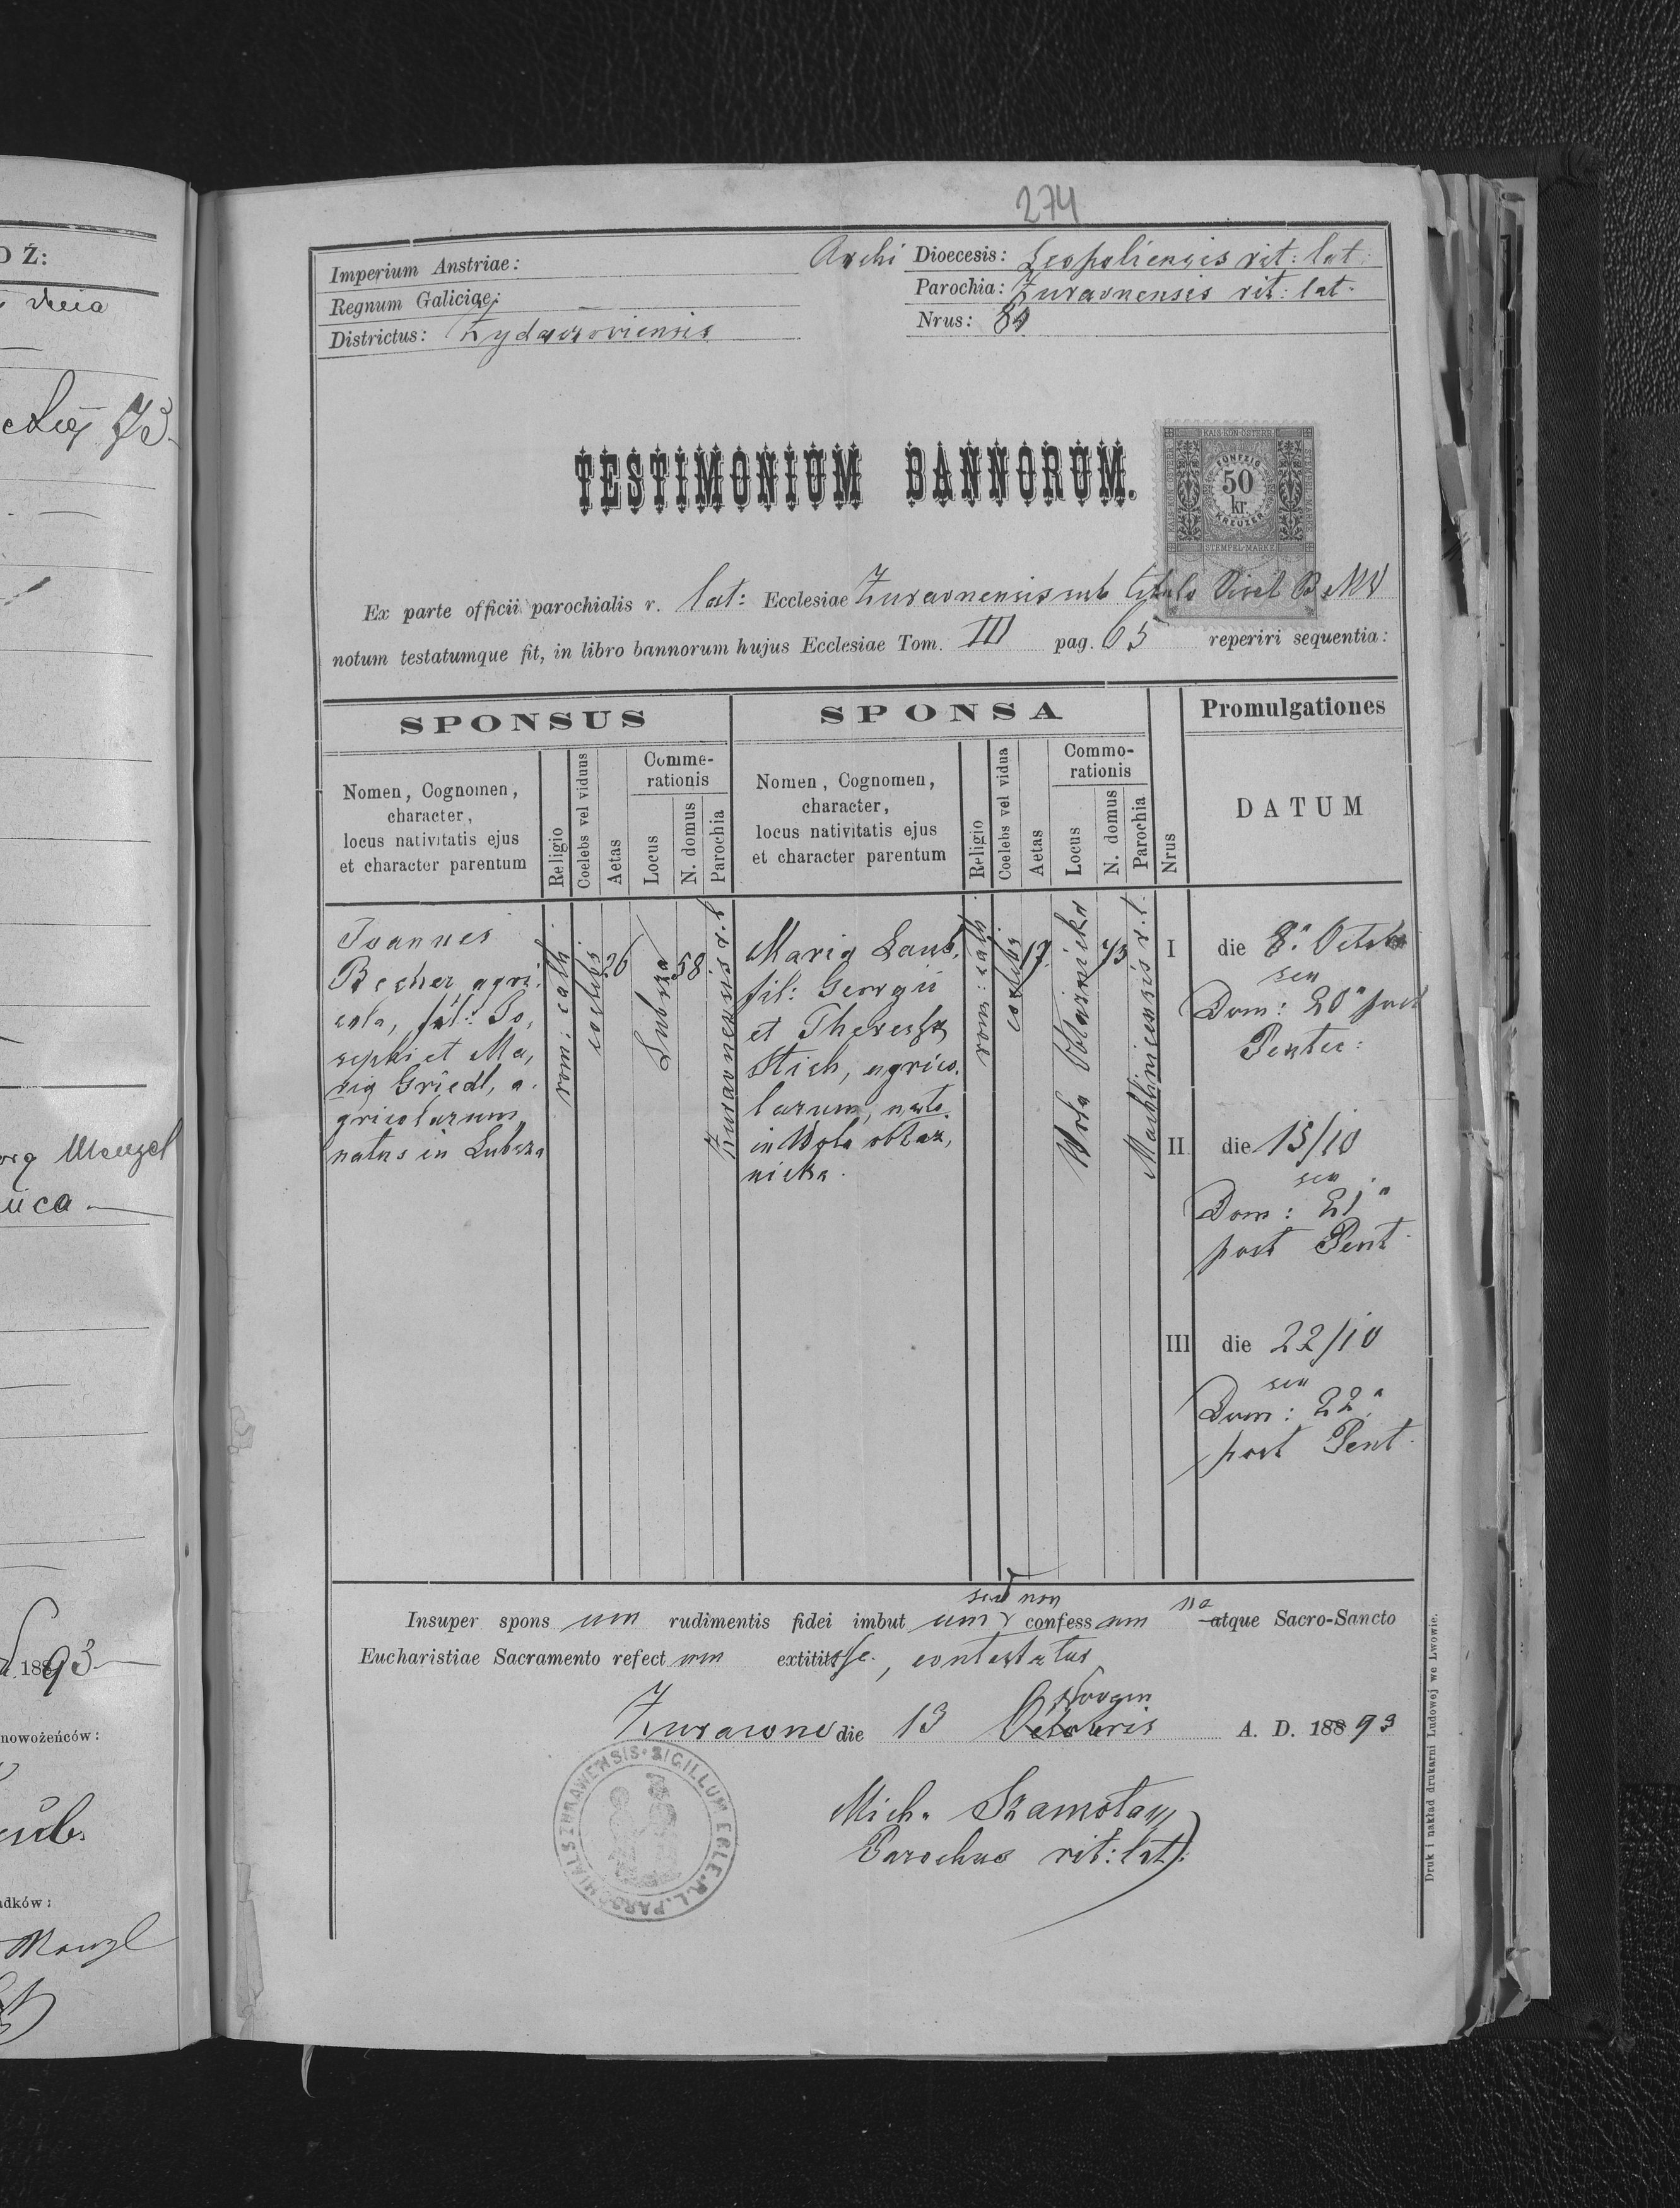 274
Imperium Anstriae:
Regnum Galiciae:
Districtus: Żydaczoviensis
Archi Dioecesis: Leopoliensis rit: lat:
Parochia: Żuravnensis rit: lat.
Nrus:
TESTIMONIUM BANNORUM.
KAIS·KÖN·ÖSTERR
FÜNFZIG
50
kr.
KREUZER
STEMPEL-MARKE
Ex parte officii parochialis r. lat: Ecclesiae Żuravnensis sub titulo B M V
notum testatumque fit, in libro bannorum hujus Ecclesiae Tom. III pag. 65 reperiri sequentia:
SPONSUS
SPONSA
Promulgationes
Nomen, Cognomen,
character,
locus nativitatis ejus
et character parentum
Religio
Coelebs vel viduus
Aetas
Comme-
rationis
Locus
N. domus
Parochia
Nomen, Cognomen,
character,
locus nativitatis ejus
et character parentum
Religio
Coelebs vel vidua
Aetas
Commo-
rationis
Locus
N. domus
Parochia
Nrus
DATUM
Joannes
Becher agri,
cola, fil: Jo,
sephi et Ma,
ria Griedl, a.
gricolarum,
natus in Lubsza
rom: cath
coelebs
26
Lubsza
58
Żuravnensis r.l
Maria Laub,
fil: Georgii
et Theresia
Stich, agrico.
larum, nata
in Wola obłaz,
nicka.
rom: cath
coelebs
17
Wola Obłaznicka
73
Machliniecensis r.l.
I die 8ª Octob
seu
Dom: 20ª post
Pentec:
II die 15/10
seu
Dom: 21ª
post Pent.
III die 22/10
seu
Dom: 22ª
post Pent.
sed non
Insuper spons um rudimentis fidei imbut um confess um atque Sacro-Sancto
Eucharistiae Sacramento refect um extitisse, contestatur
Żurawno die 13 Octobris A. D. 188 93
Mich. Szamota
Parochus rit: lat:
SIGILLUM ECLE. R.L. PAROCHIALS ZURAWENSIS
Druk i nakład drukarni Ludowej we Lwowie.
DŻ:
73
Menzel
188 93
nowożeńców:
adków: